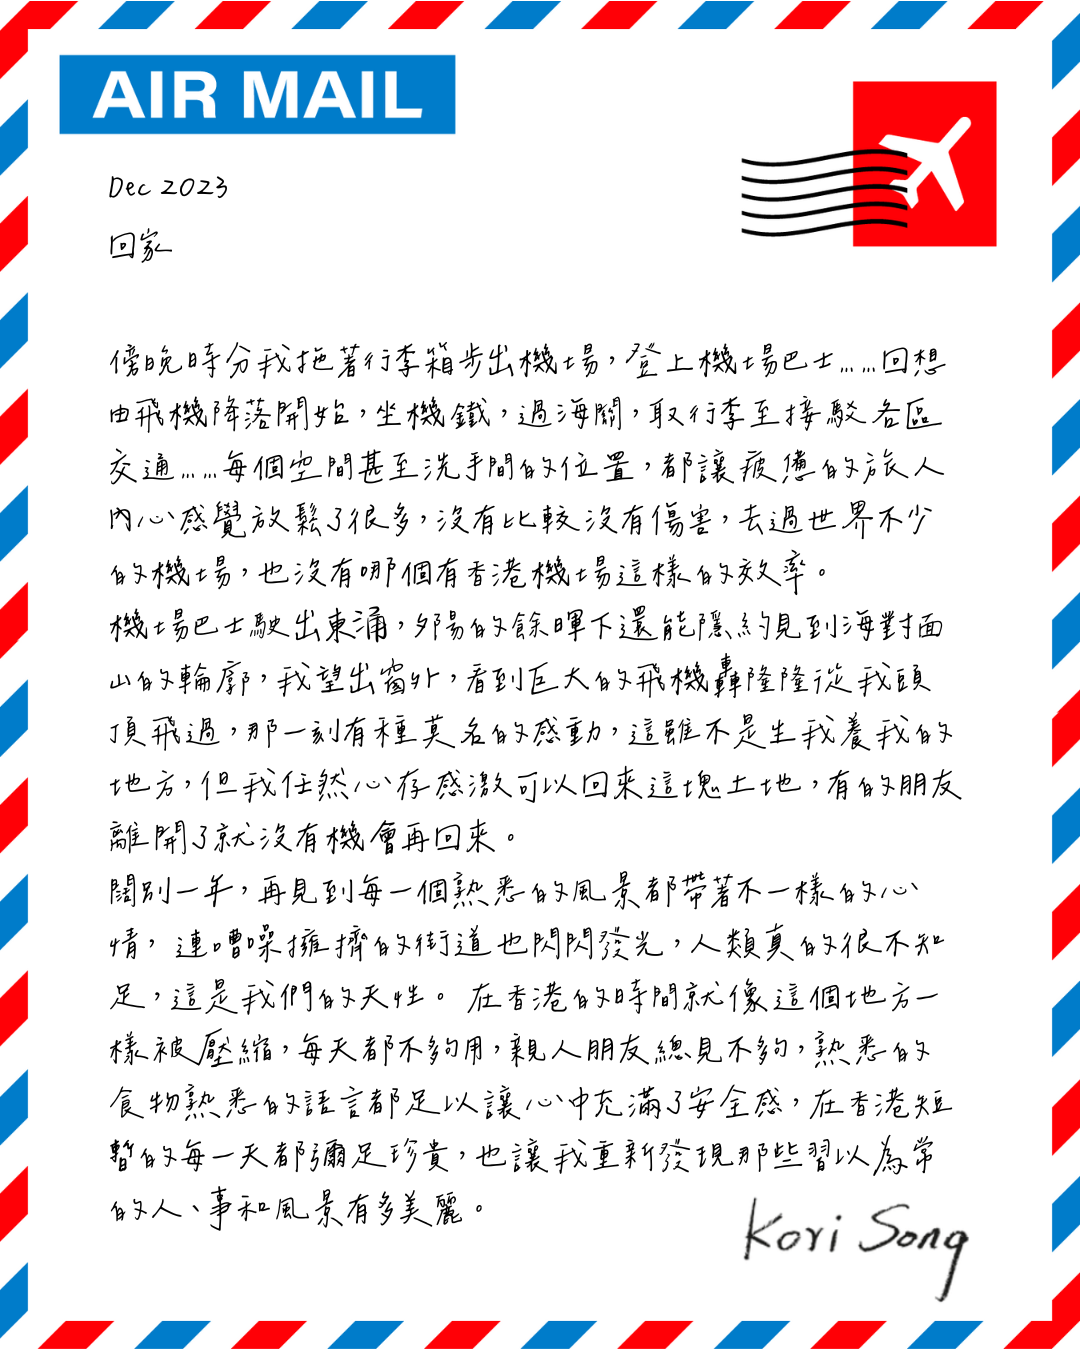 AIR MAIL
Dec 2023
回家
傍晚時分我拖著行李箱步出機場，登上機場巴士……回想
由飛機降落開始，坐機鐵，過海關，取行李至接駁各區
交通……每個空間甚至洗手間的位置，都讓疲憊的旅人
內心感覺放鬆了很多，沒有比較沒有傷害，去過世界不少
的機場，也沒有哪個有香港機場這樣的效率。
機場巴士駛出東涌，夕陽的餘暉下還能隱約見到海對面
山的輪廓，我望出窗外，看到巨大的飛機轟隆隆從我頭
頂飛過，那一刻有種莫名的感動，這雖不是生我養我的
地方，但我任然心存感激可以回來這塊土地，有的朋友
離開了就沒有機會再回來。
闊別一年，再見到每一個熟悉的風景都帶著不一樣的心
情，連嘈噪擁擠的街道也閃閃發光，人類真的很不知
足，這是我們的天性。在香港的時間就像這個地方一
樣被壓縮，每天都不夠用，親人朋友總見不夠，熟悉的
食物熟悉的語言都足以讓心中充滿了安全感，在香港短
暫的每一天都彌足珍貴，也讓我重新發現那些習以為常
的人、事和風景有多美麗。
Kori Song